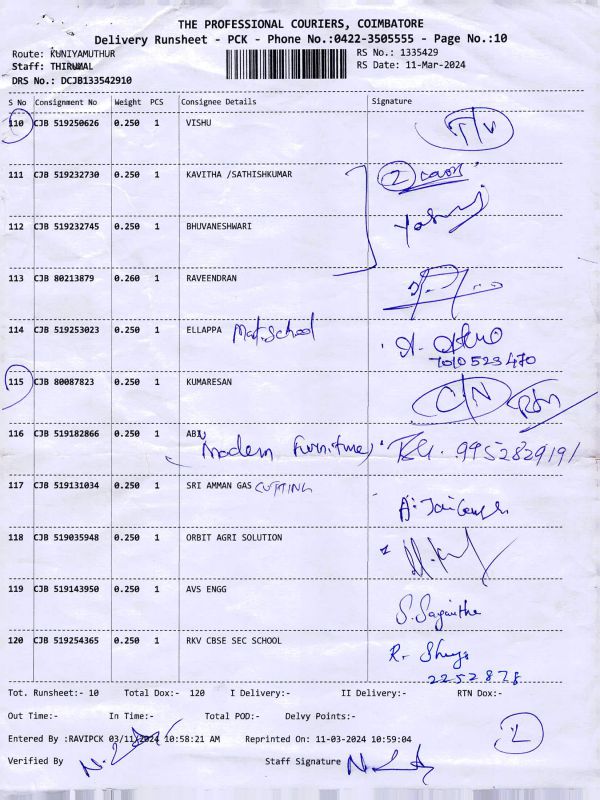 THE PROFESSIONAL COURIERS, COIMBATORE
Delivery Runsheet - PCK - Phone No.:0422-3505555 - Page No.:10
Route: KUNIYAMUTHUR
RS No.: 1335429
Staff: THIRUMAL
RS Date: 11-Mar-2024
DRS No.: DCJB133542910
S No Consignment No Weight PCS Consignee Details Signature
110 CJB 519250626 0.250 1 VISHU
111 CJB 519232730 0.250 1 KAVITHA /SATHISHKUMAR 2
112 CJB 519232745 0.250 1 BHUVANESHWARI
113 CJB 80213879 0.260 1 RAVEENDRAN
114 CJB 519253023 0.250 1 ELLAPPA Mat.School
7010523470
115 CJB 80087823 0.250 1 KUMARESAN C/N
116 CJB 519182866 0.250 1
Modern Furniture 9952829191
117 CJB 519131034 0.250 1 SRI AMMAN GAS CUTTING
118 CJB 519035948 0.250 1 ORBIT AGRI SOLUTION
119 CJB 519143950 0.250 1 AVS ENGG
120 CJB 519254365 0.250 1 RKV CBSE SEC SCHOOL
2252878
Tot. Runsheet:- 10 Total Dox:- 120 I Delivery:- II Delivery:- RTN Dox:-
Out Time:- In Time:- Total POD:- Delvy Points:-
Entered By :RAVIPCK 03/11/2024 10:58:21 AM Reprinted On: 11-03-2024 10:59:04
Verified By Staff Signature